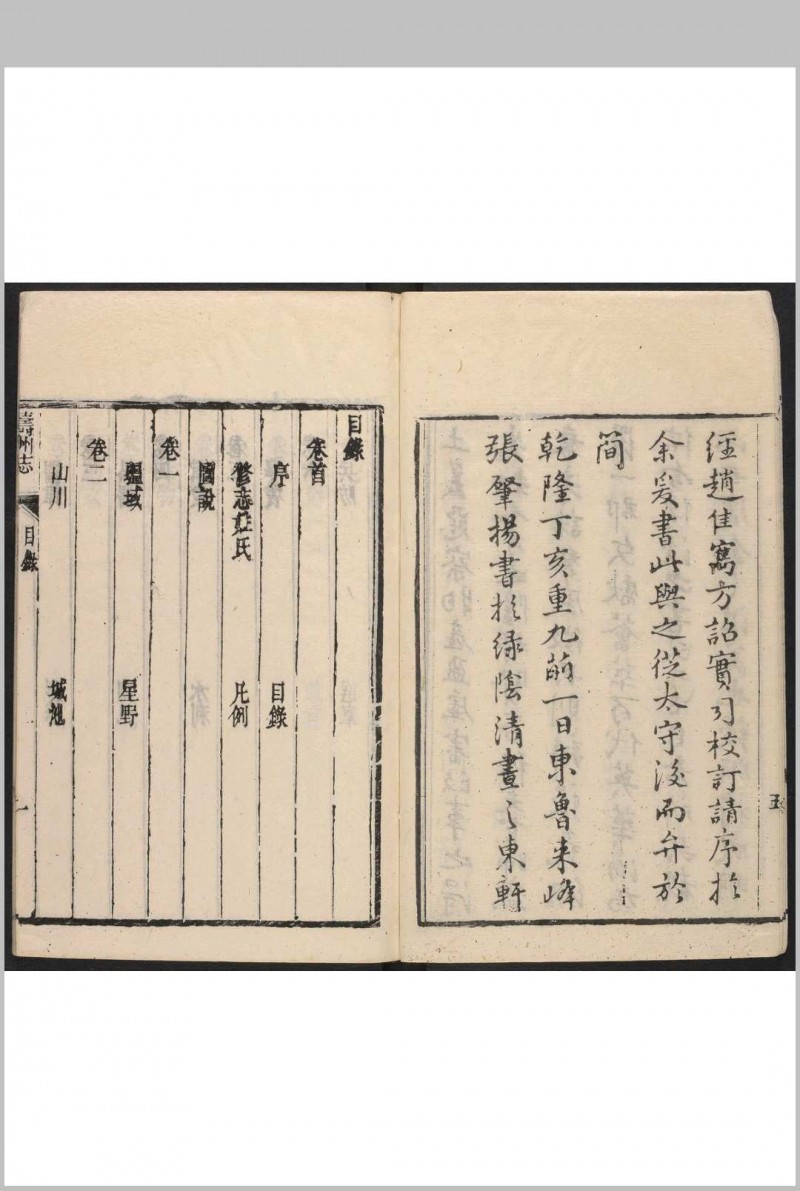 經趙隹寯方詔實司校訂請序於
余爰書此與之從太守後而弁於
簡
乾隆丁亥重九前一日東魯来峰
張肇揚書於綠陰清晝之東軒
五
目錄
卷首
序 目錄
修志姓氏 凡例
圖說
卷一
疆域 星野
卷二
山川 城池
壽州志 目錄 一